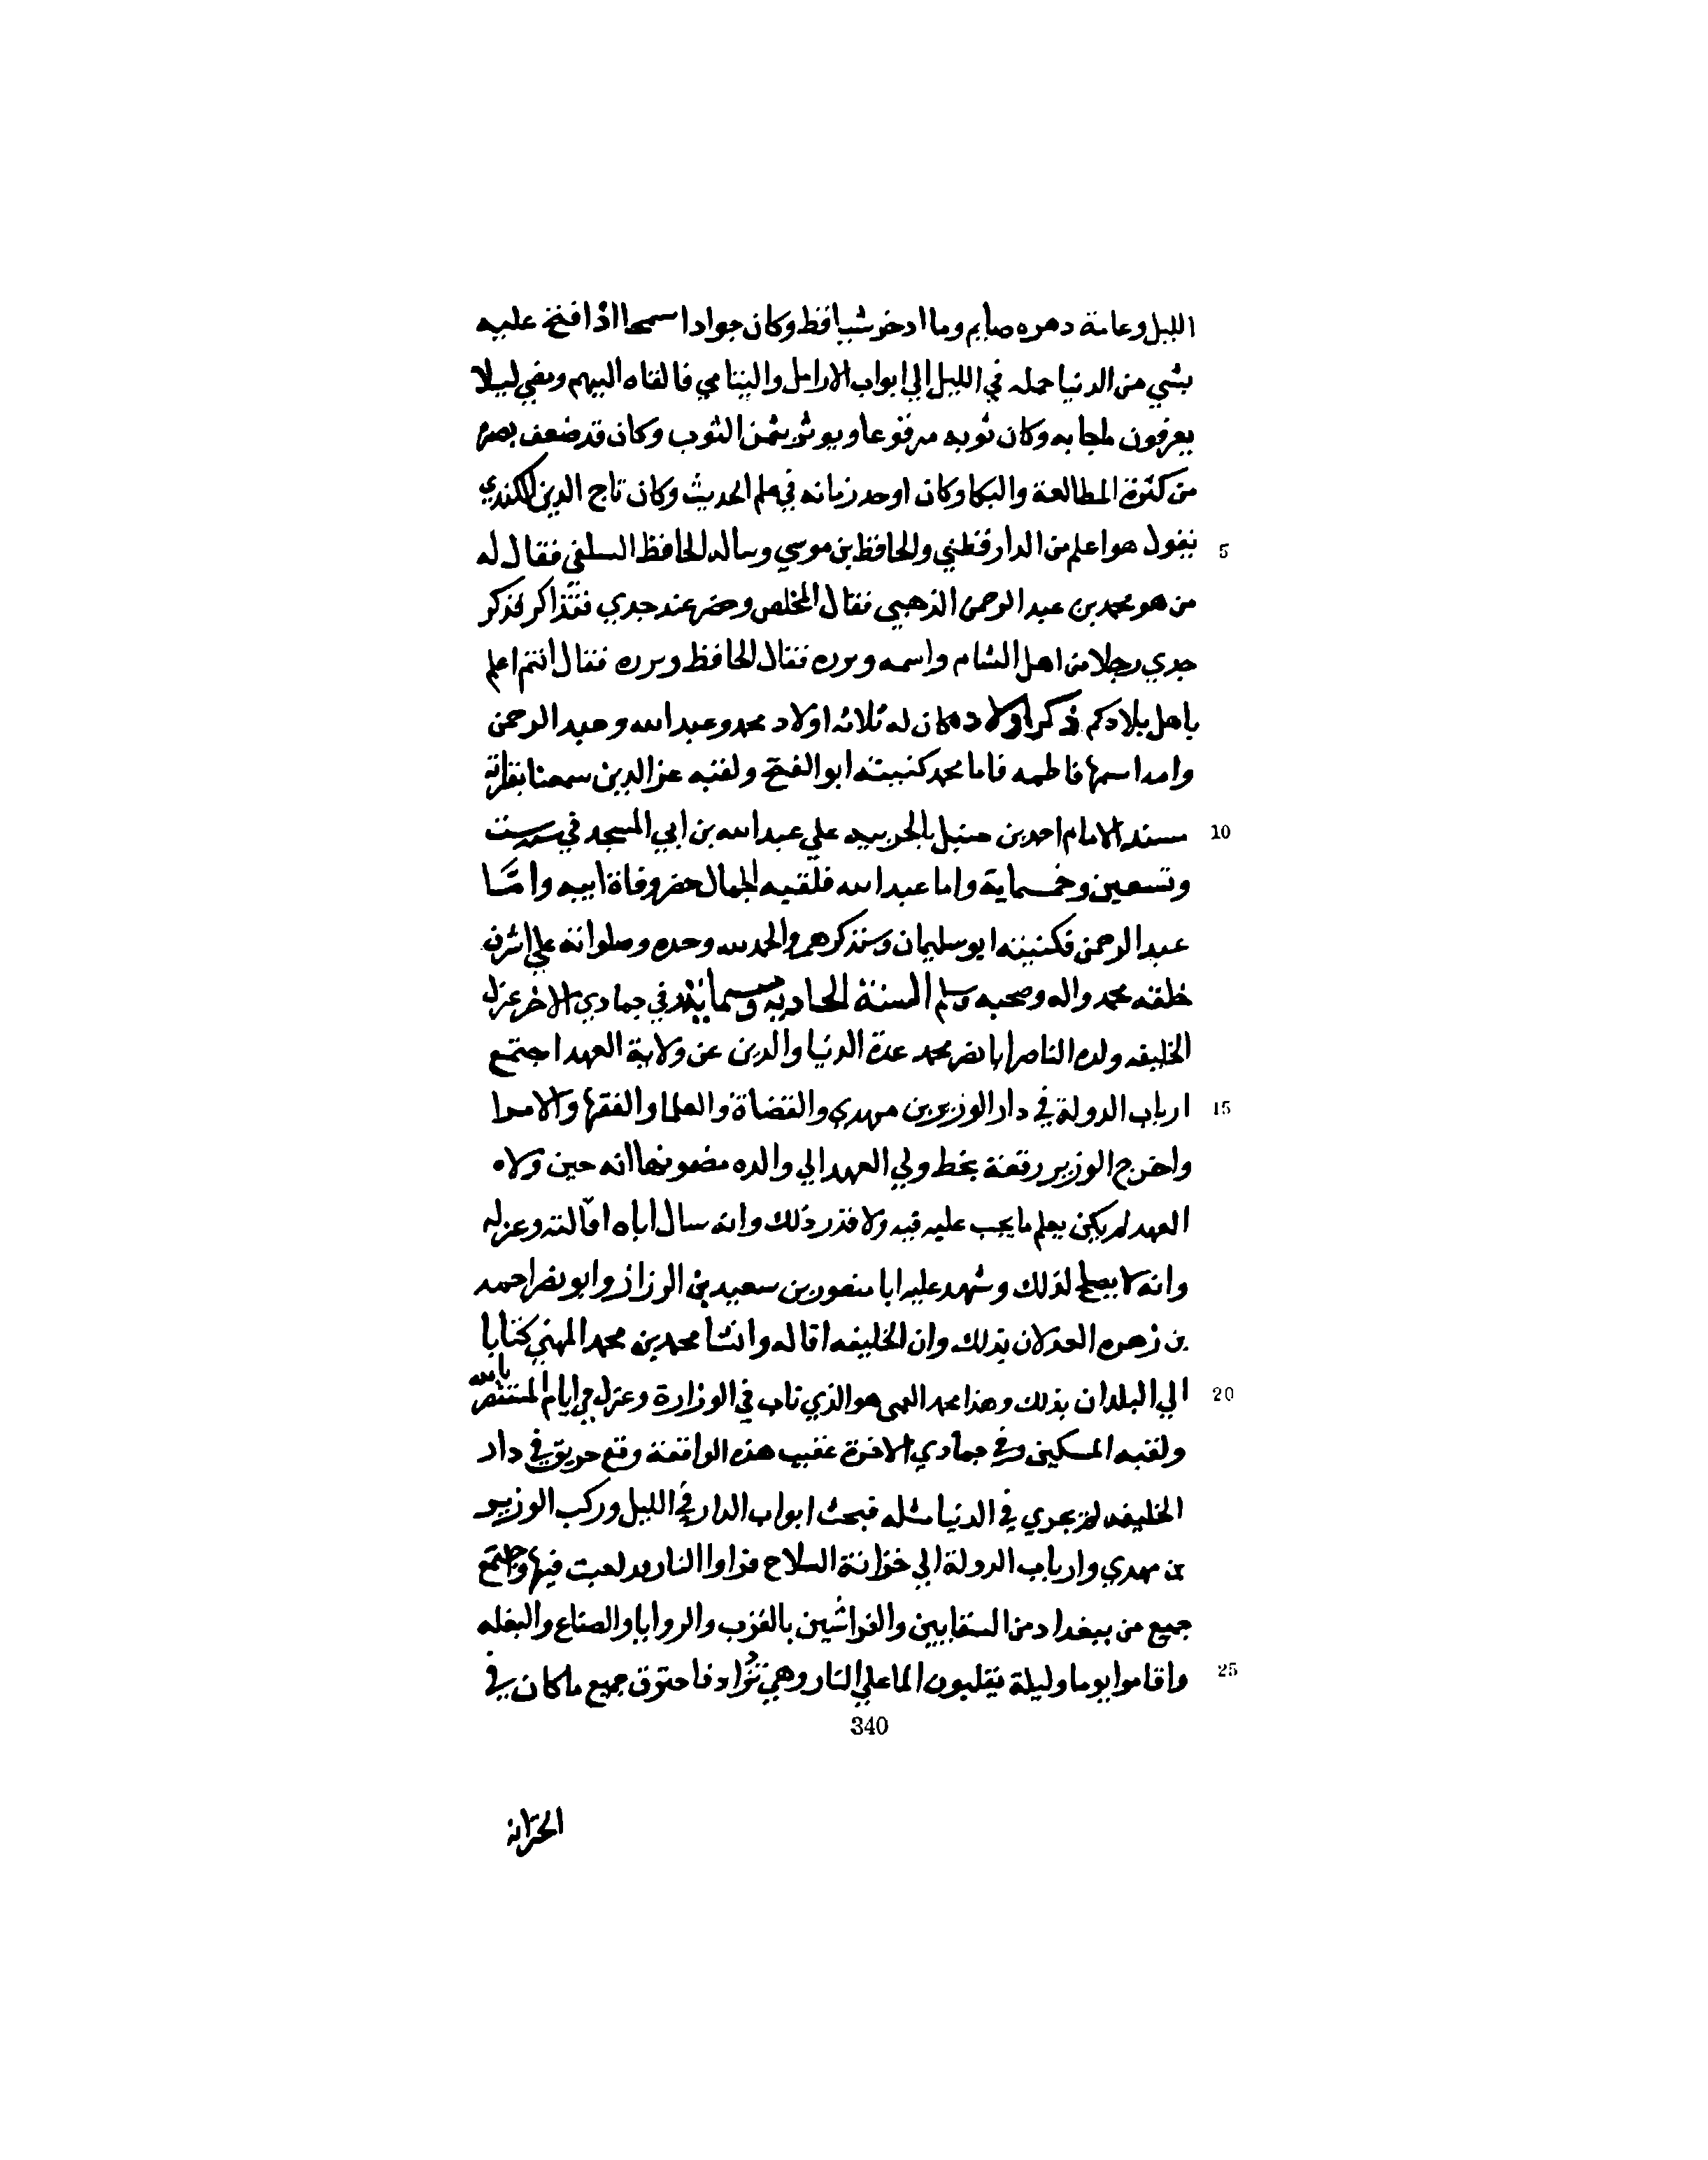 الليل وعامة دهره صايم وما ادخر شيا قط وكان جوادا سمحا اذا فتح عليه
بشي من الدنيا حمله في الليل الي ابواب الارامل واليتامي فالقاه اليهم ومضي ليلا
يعرفون ماجا به وكان ثوبه مرقوعا ويوثر بثمن الثوب وكان قد ضعف بصره
من كثرة المطالعة والبكا وكان اوحد زمانه في علم الحديث وكان تاج الدين الكندي
يقول هو اعلم من الدارقطني والحافظ بن موسي وساله الحافظ السلفي فقال له
من هو محمد بن عبد الرحمن الذهبي فقال المخلص وحضر عند جدي فتذاكر فذكر
جدي رجلا من اهل الشام واسمه وبره فقال الحافظ وبره فقال انتم اعلم
باهل بلادكم ذكر اولاده كان له ثلاثه اولاد محمد وعبد الله وعبد الرحمن
وامه اسمها فاطمه فاما محمد كنيته ابو الفتح ولقبه عز الدين سمعنا بقراته
مسند الامام احمد بن حنبل بالحربيه علي عبد الله بن ابي المجد في سنة ست
وتسعين وخمسماية واما عبد الله فلقبه الجمال حضر وفاة ابيه وامّا
عبد الرحمن فكنيته ابو سليمان وسنذكرهم والحمد لله وحده وصلواته علي اشرف
خلقه محمد واله وصحبه وسلم السنة الحاديه وستماية وفي جمادي الاخر عزل
الخليفه ولده الناصر ابا نصر محمد عدة الدنيا والدين عن ولاية العهد اجتمع
ارباب الدولة في دار الوزير بن مهدي والقضاة والعلما والفقها والامرا
واخرج الوزير رقعة بخط ولي العهد الي والده مضمونها انه حين ولاه
العهد لم يكن يعلم ما يجب عليه فيه ولا قدر ذلك وانه سال اباه اقالته وعزله
وانه لا يصلح لذلك وشهد عليه ابا منصور بن سعيد بن الرزاز وابو نصر احمد
بن زهره العدلان بذلك وان الخليفه اقاله وانشا محمد بن محمد المهني كتابا
الي البلدان بذلك وهذا محمد القمي هو الذي ناب في الوزارة وعزل في ايام المستنصر بالله
ولقبه المسكين وفي جمادي الاخرة عقيب هذه الواقعة وقع حريق في دار
الخليفه لم يجري في الدنيا مثله فتحت ابواب الدار في الليل وركب الوزير
بن مهدي وارباب الدولة الي خزانة السلاح فراوا النار قد لعبت فيها واجتمع
جميع من ببغداد من السقايين والفراشين بالقرب والروايا والصناع والبغله
واقاموا يوما وليلة يقلبون الما علي النار وهي تزداد فاحترق جميع ما كان في
5
10
15
20
25
340
الخزانة